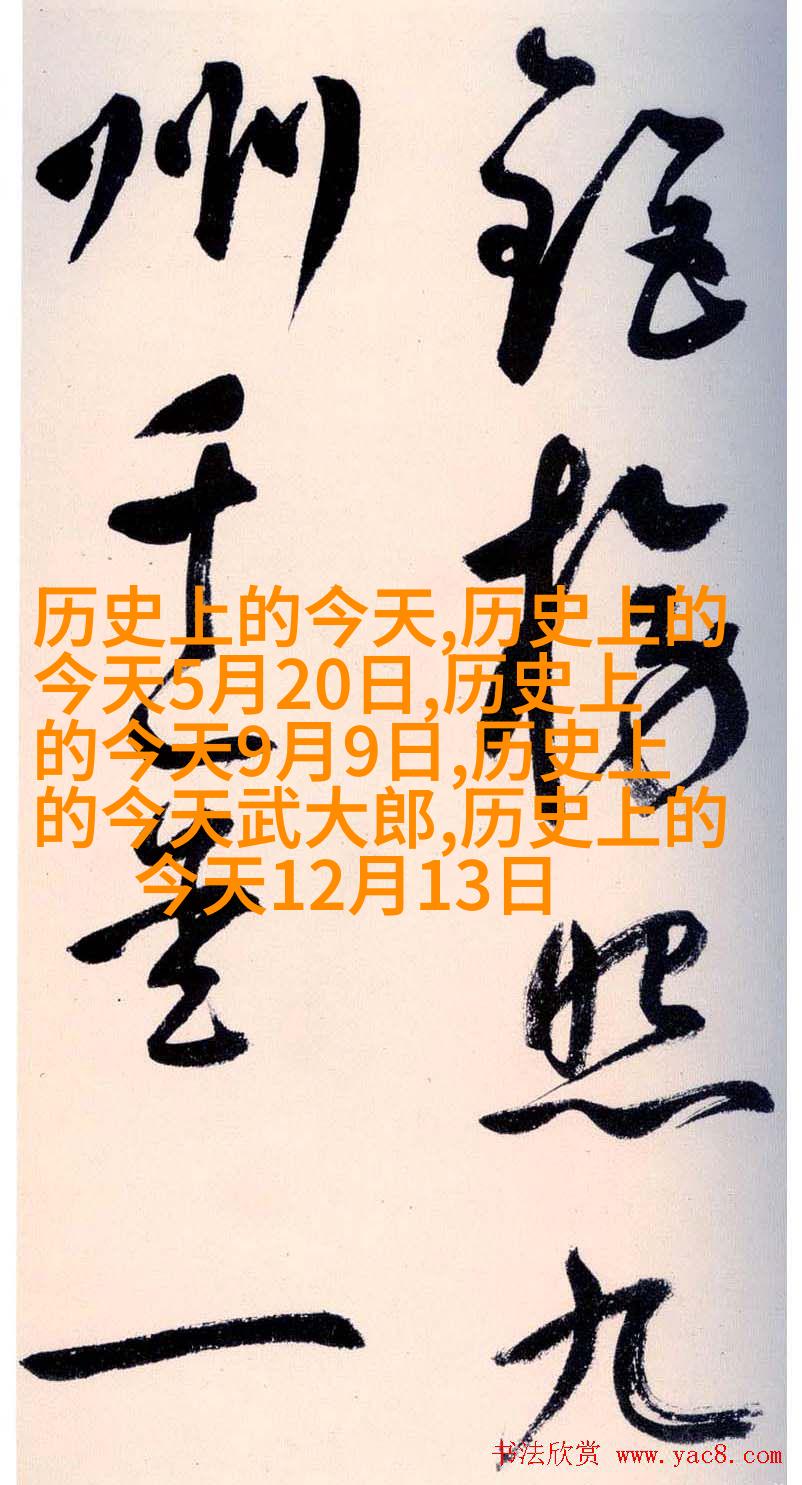 銀榜照九
州千一
历史上的今天,历史上的
今天5月20日,历史上
的今天9月9日,历史上
的今天武大郎,历史上的
今天12月13日
书法欣赏 www.yac8.com